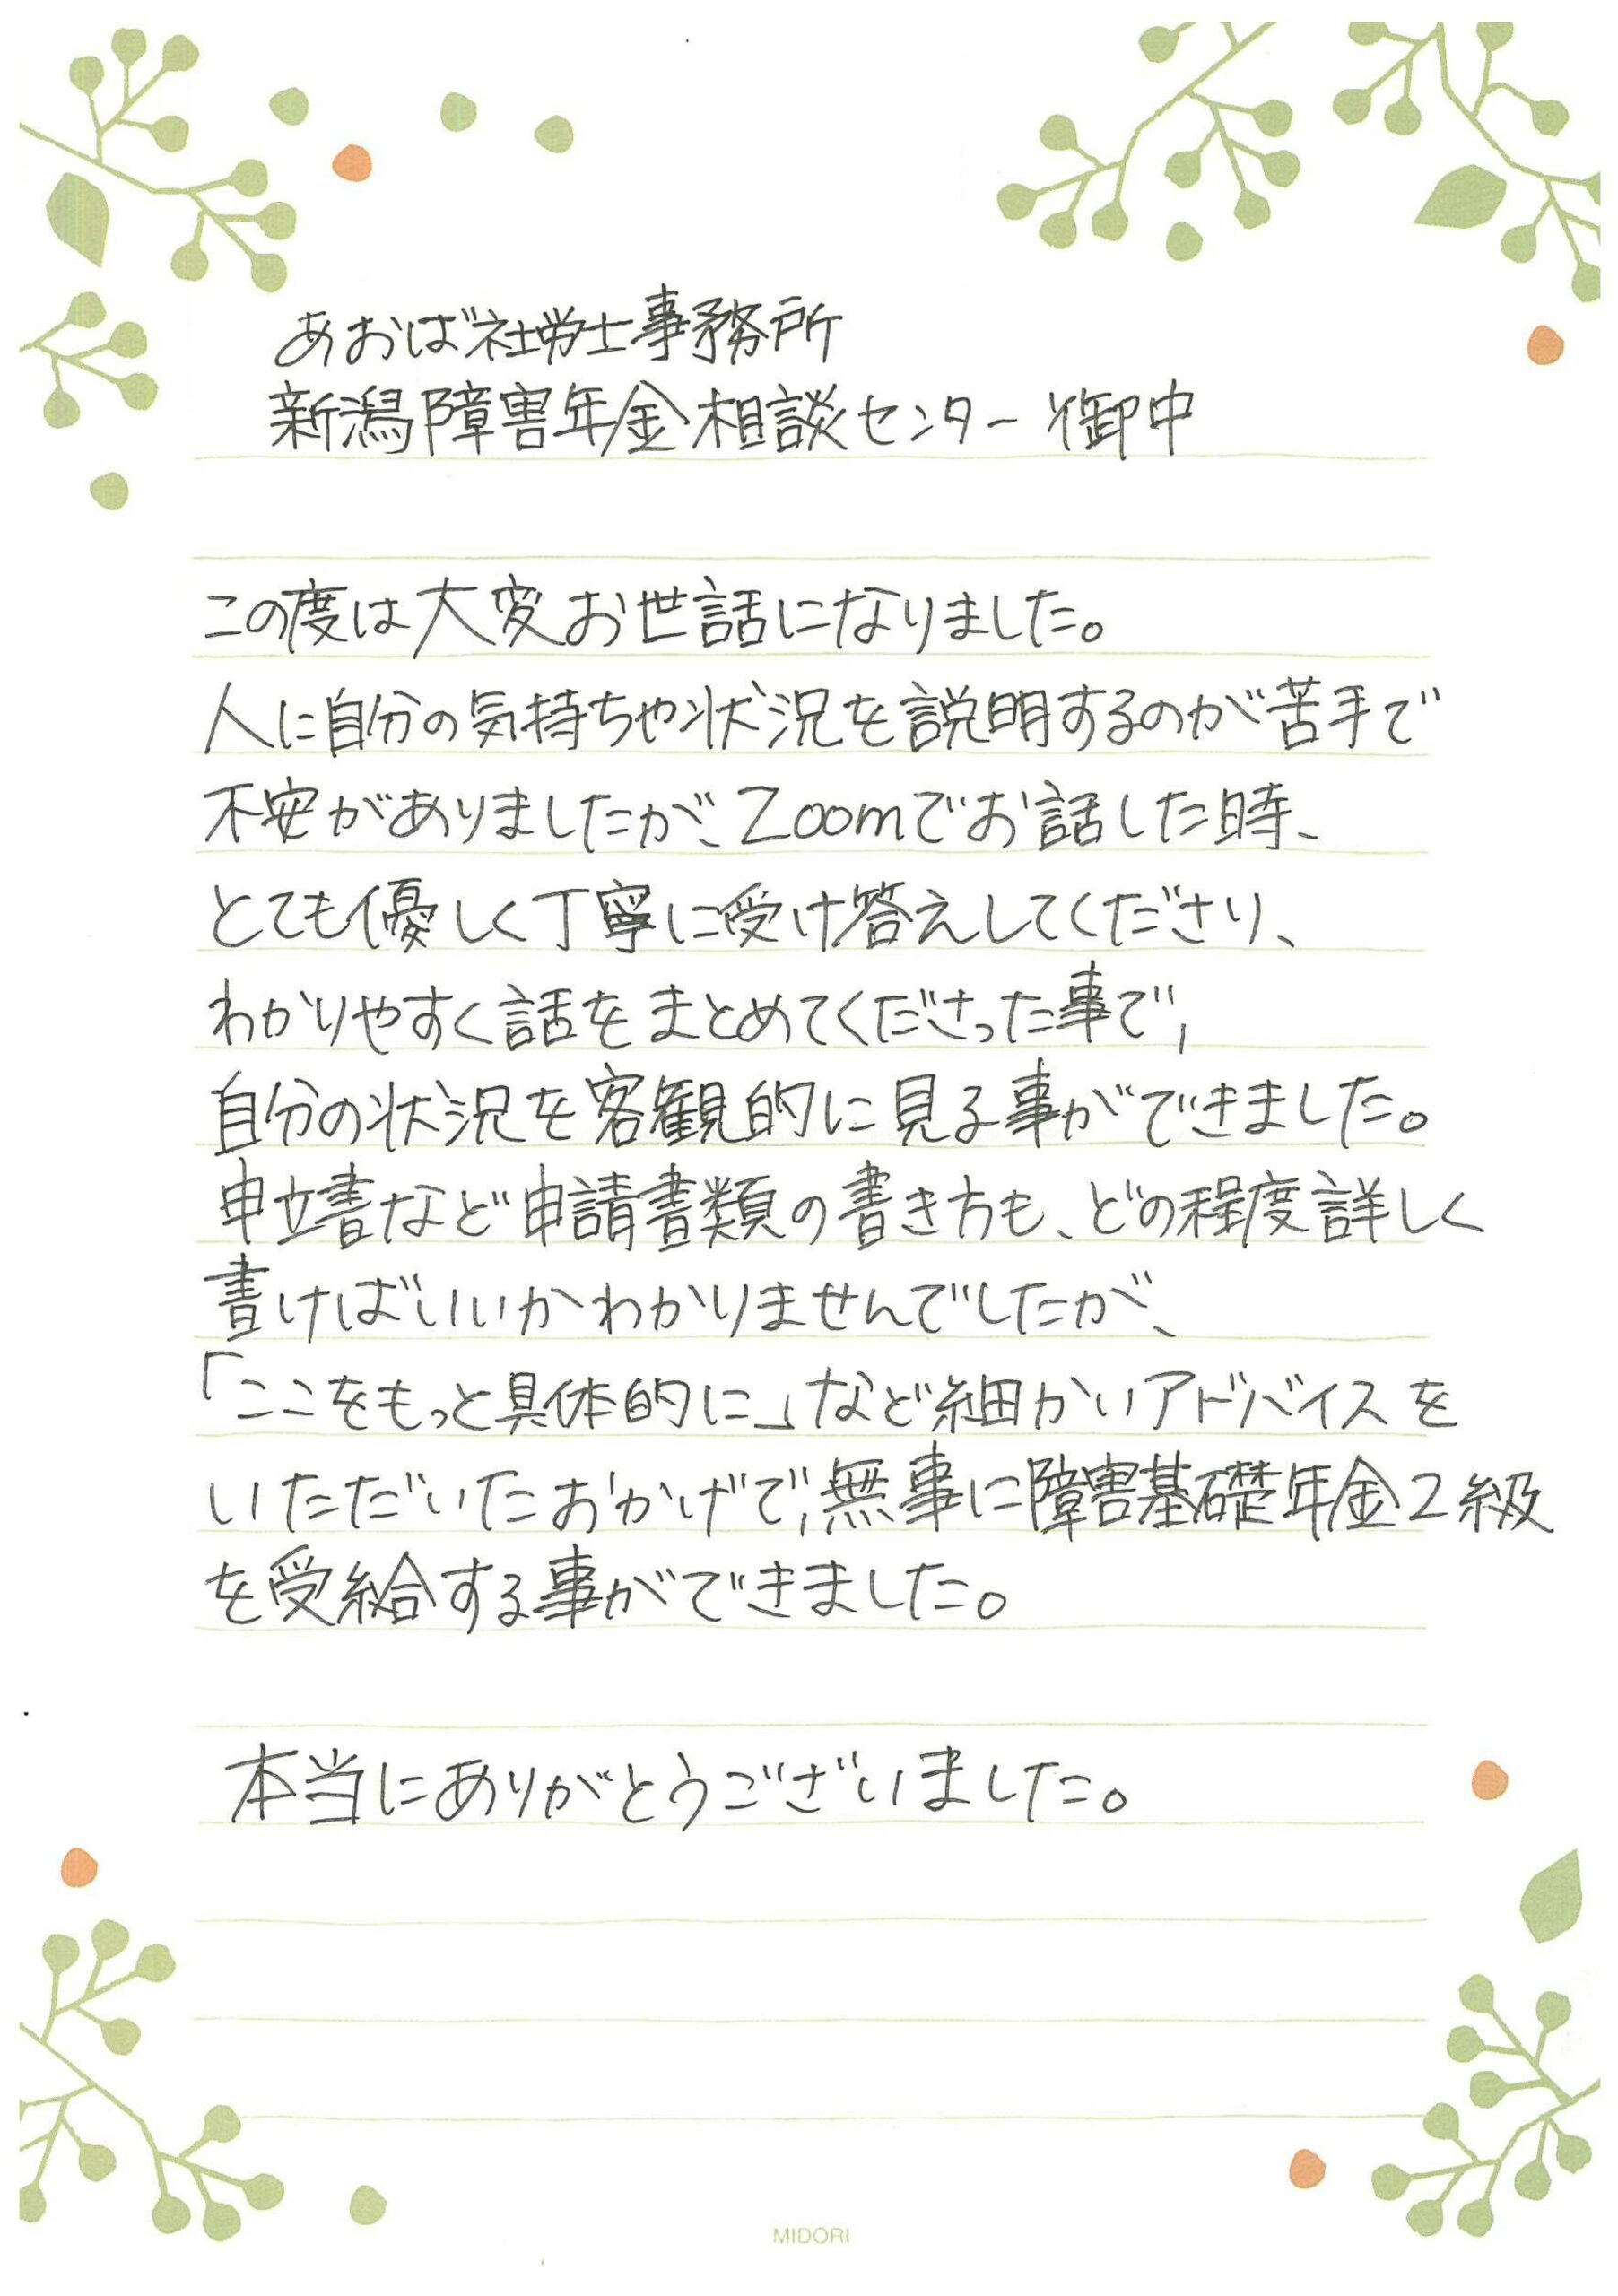 あおば社労士事務所
新潟障害年金相談センター 御中
この度は大変お世話になりました。
人に自分の気持ちや状況を説明するのが苦手で
不安がありましたが、Zoomでお話した時、
とても優しく丁寧に受け答えしてくださり、
わかりやすく話をまとめてくださった事で、
自分の状況を客観的に見る事ができました。
申立書など申請書類の書き方も、どの程度詳しく
書けばいいかわかりませんでしたが、
「ここをもっと具体的に」など細かいアドバイスを
いただいたおかげで、無事に障害基礎年金2級
を受給する事ができました。
本当にありがとうございました。
MIDORI